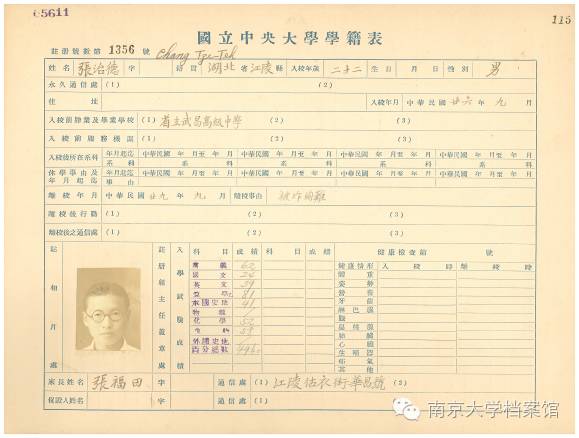 05611
115
國立中央大學學籍表
註册號數第 1356 號 Chang Tze-Teh
姓名 張治德 字 籍貫 湖北 省 江陵 縣 入校年歲 二十二 生日 月 日 性别 男
永久通信處 (1) (2)
住址 入校年月 中華民國 廿六 年 九 月
入校前肄業及畢業學校 (1) 省立武昌高級中學 (2) (3)
入校前服務機關 (1) (2) (3)
入校後所在系科 年月起訖 中華民國 年 月至 年 月 中華民國 年 月至 年 月 中華民國 年 月至 年 月 中華民國 年 月至 年 月
系科 系 科 系 科 系 科 系 科
休學學由及年月起訖 年月起訖 中華民國 年 月至 年 月 中華民國 年 月至 年 月 中華民國 年 月至 年 月 中華民國 年 月至 年 月
事由
離校年月 中華民國 廿九 年 九 月 離校事由 被炸殉難
離校後行動 (1) (2) (3)
離校後之通信處 (1) (2) (3)
註册月處
註册組主任蓋章處
入學試驗成績
科目 成績 科目 成績
國文
英文
本國史地
物理
化學
外國史地
健康檢查第 號
健康情形 入校時 離校時
體重
姿勢
營養
牙齒
淋巴腺
眼
扁桃腺
肺臟
心臟
生殖器
疝氣
其他
家長姓名 張福田 字 通信處 (1) 江陵估衣街華昌號 (2)
保證人姓名 字 通信處 (1)
南京大学档案馆